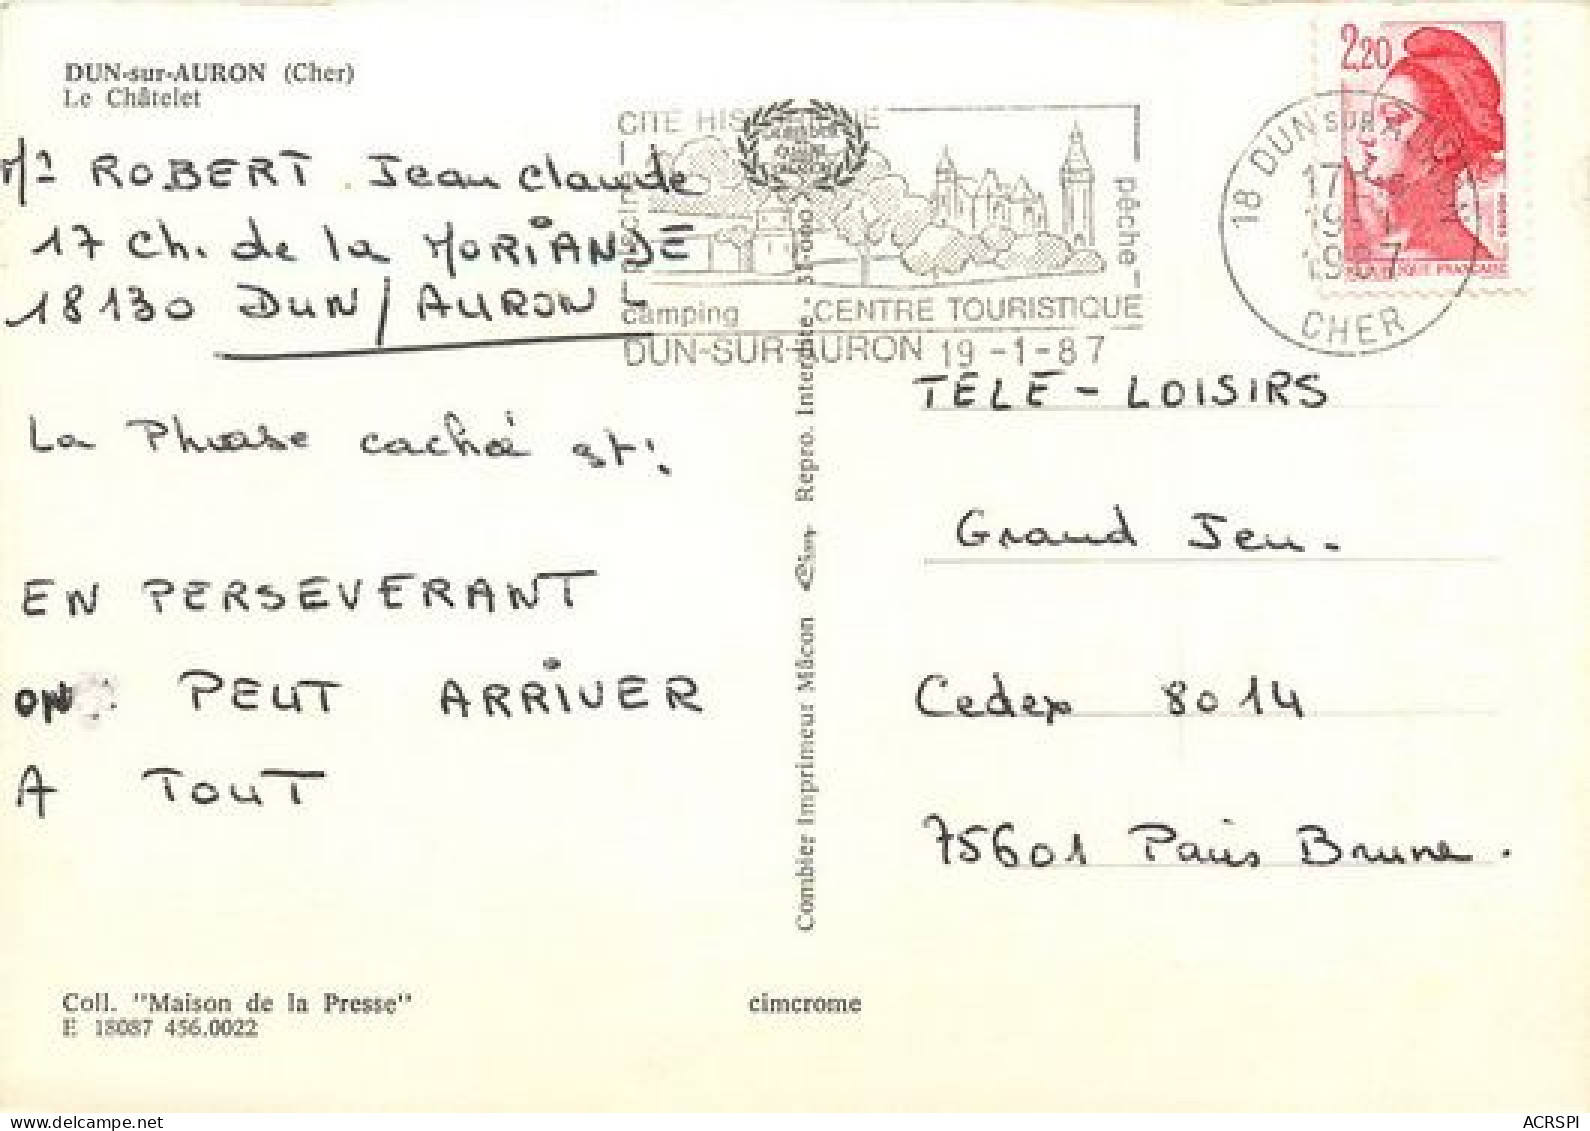 DUN-sur-AURON (Cher)
Le Châtelet
Mr ROBERT Jean Claude
17 Ch. de la MORIANDE
18130 DUN/AURON
La Phrase caché est:
EN PERSEVERANT
ON PEUT ARRIVER
A TOUT
Coll. "Maison de la Presse"
E 18087 456.0022
cimcrome
Combier Imprimeur Mâcon Cim Repro. Interdite - 51-000
CITE HISTORIQUE
piscine
pêche
camping CENTRE TOURISTIQUE
DUN-SUR-AURON 19-1-87
2,20
REPUBLIQUE FRANCAISE
18 DUN SUR AURON
17
19-1
1987
CHER
TÉLÉ - LOISIRS
Grand Jeu.
Cedex 8014
75601 Paris Brune.
ACRSPI
delcampe.net